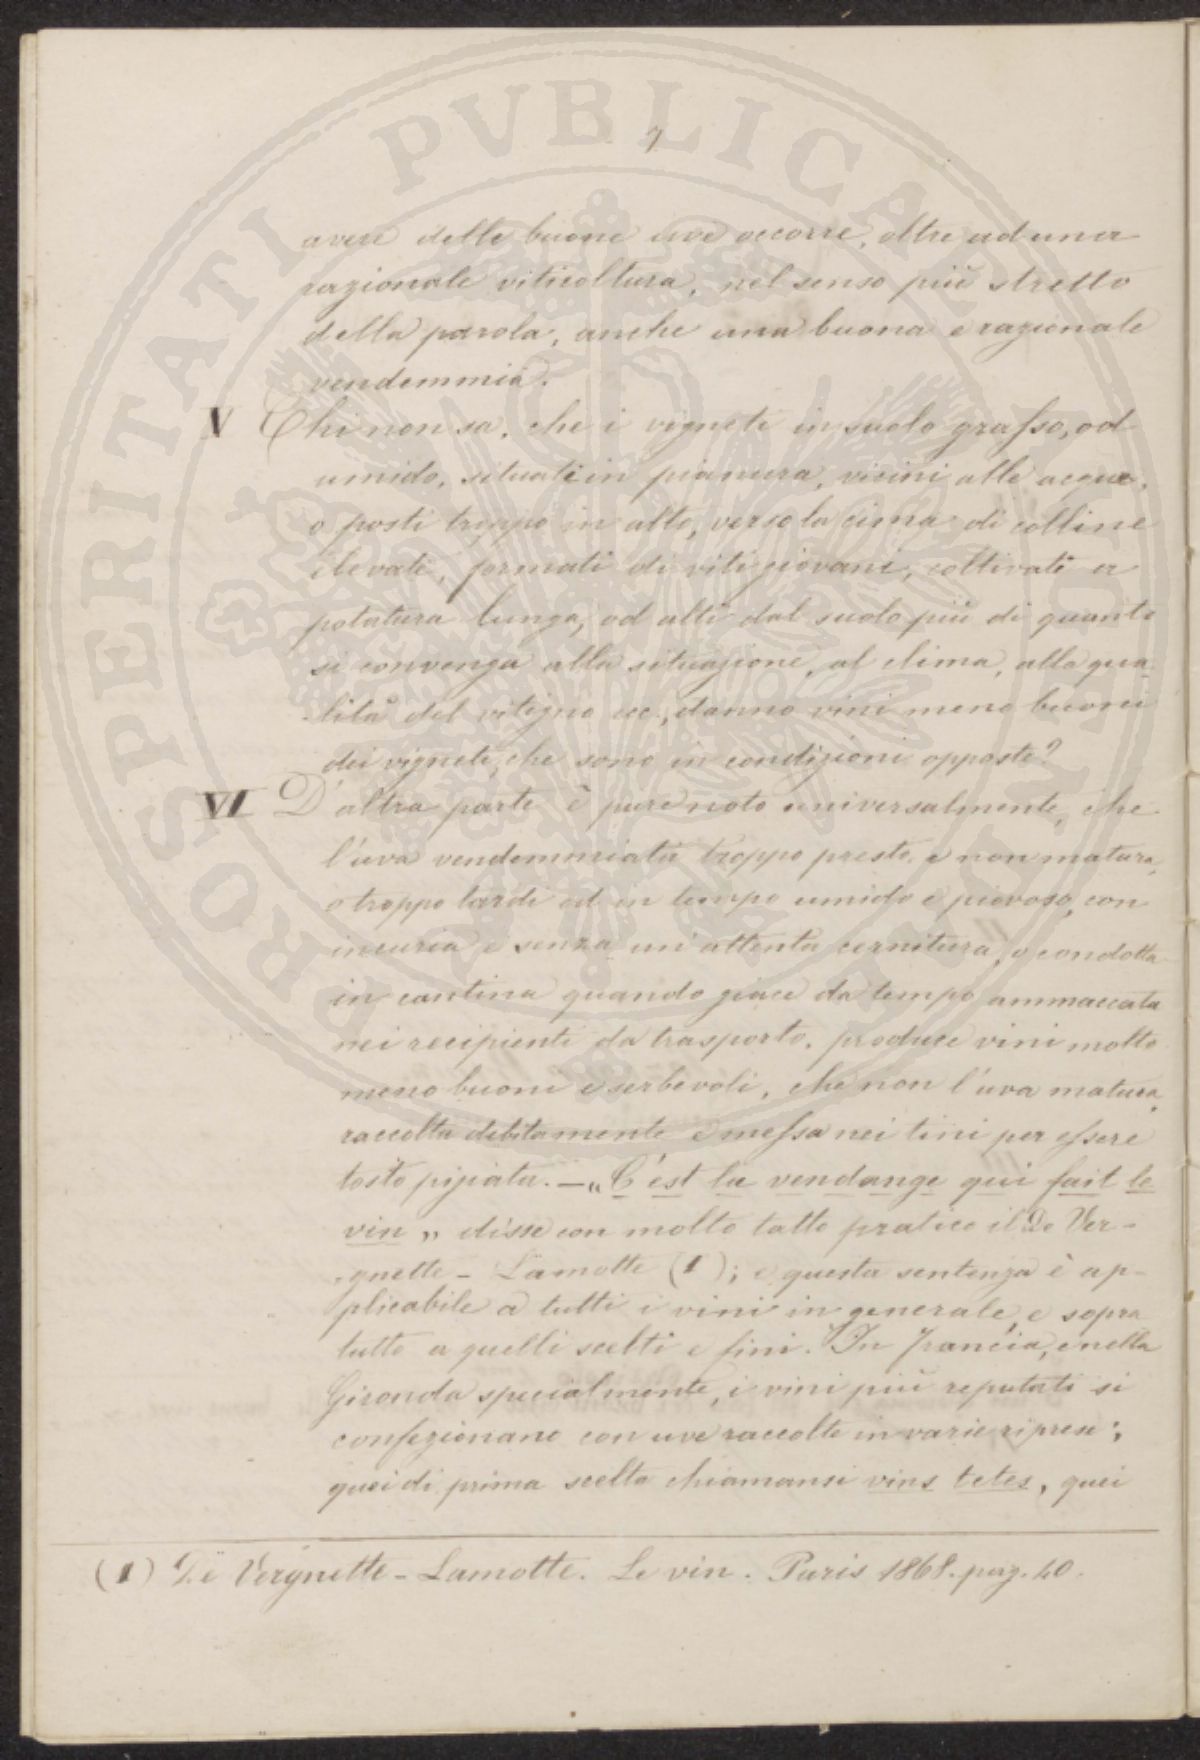 7
avere delle buone uve occorre, oltre ad una
razionale viticoltura, nel senso più stretto
della parola, anche una buona e razionale
vendemmia.
V Chi non sa, che i vigneti in suolo grasso, od
umido, situati in pianura, vicini alle acque,
o posti troppo in alto, verso la cima di colline
elevate, formati di viti giovani, coltivati a
potatura lunga, od alti dal suolo più di quanto
si convenga alla situazione, al clima, alla qua-
lità del vitigno ecc., danno vini meno buoni
dei vigneti, che sono in condizioni opposte?
VI D'altra parte è pure noto universalmente, che
l'uva vendemmiata troppo presto e non matura,
o troppo tardi ed in tempo umido e piovoso, con
incuria e senza un'attenta cernitura, o condotta
in cantina quando giace da tempo ammaccata
nei recipienti da trasporto, produce vini molto
meno buoni e serbevoli, che non l'uva matura,
raccolta debitamente e messa nei tini per essere
tosto pigiata. — „C'est la vendange qui fait le
vin„ disse con molto tatto pratico il De Ver-
gnette - Lamotte (1); e questa sentenza è ap-
plicabile a tutti i vini in generale, e sopra
tutto a quelli scelti e fini. In Francia, e nella
Gironda specialmente, i vini più reputati si
confezionano con uve raccolte in varie riprese;
quei di prima scelta chiamansi vins tetes, quei
(1) De Vergnette - Lamotte. Le vin. Paris 1868. pag. 40.
PROSPERITATI PVBLICAE